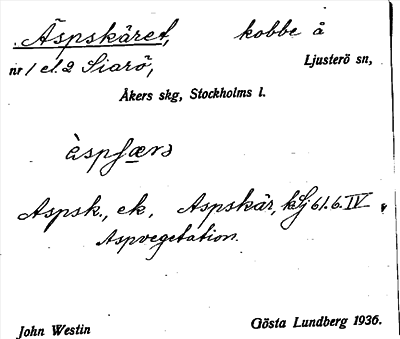 Äspskäret, kobbe å
nr 1 el. 2 Siarö, Ljusterö sn,
Åkers skg, Stockholms l.
Aspsk., ek, Aspskär, 61.6.IV
Aspvegetation.
John Westin Gösta Lundberg 1936.